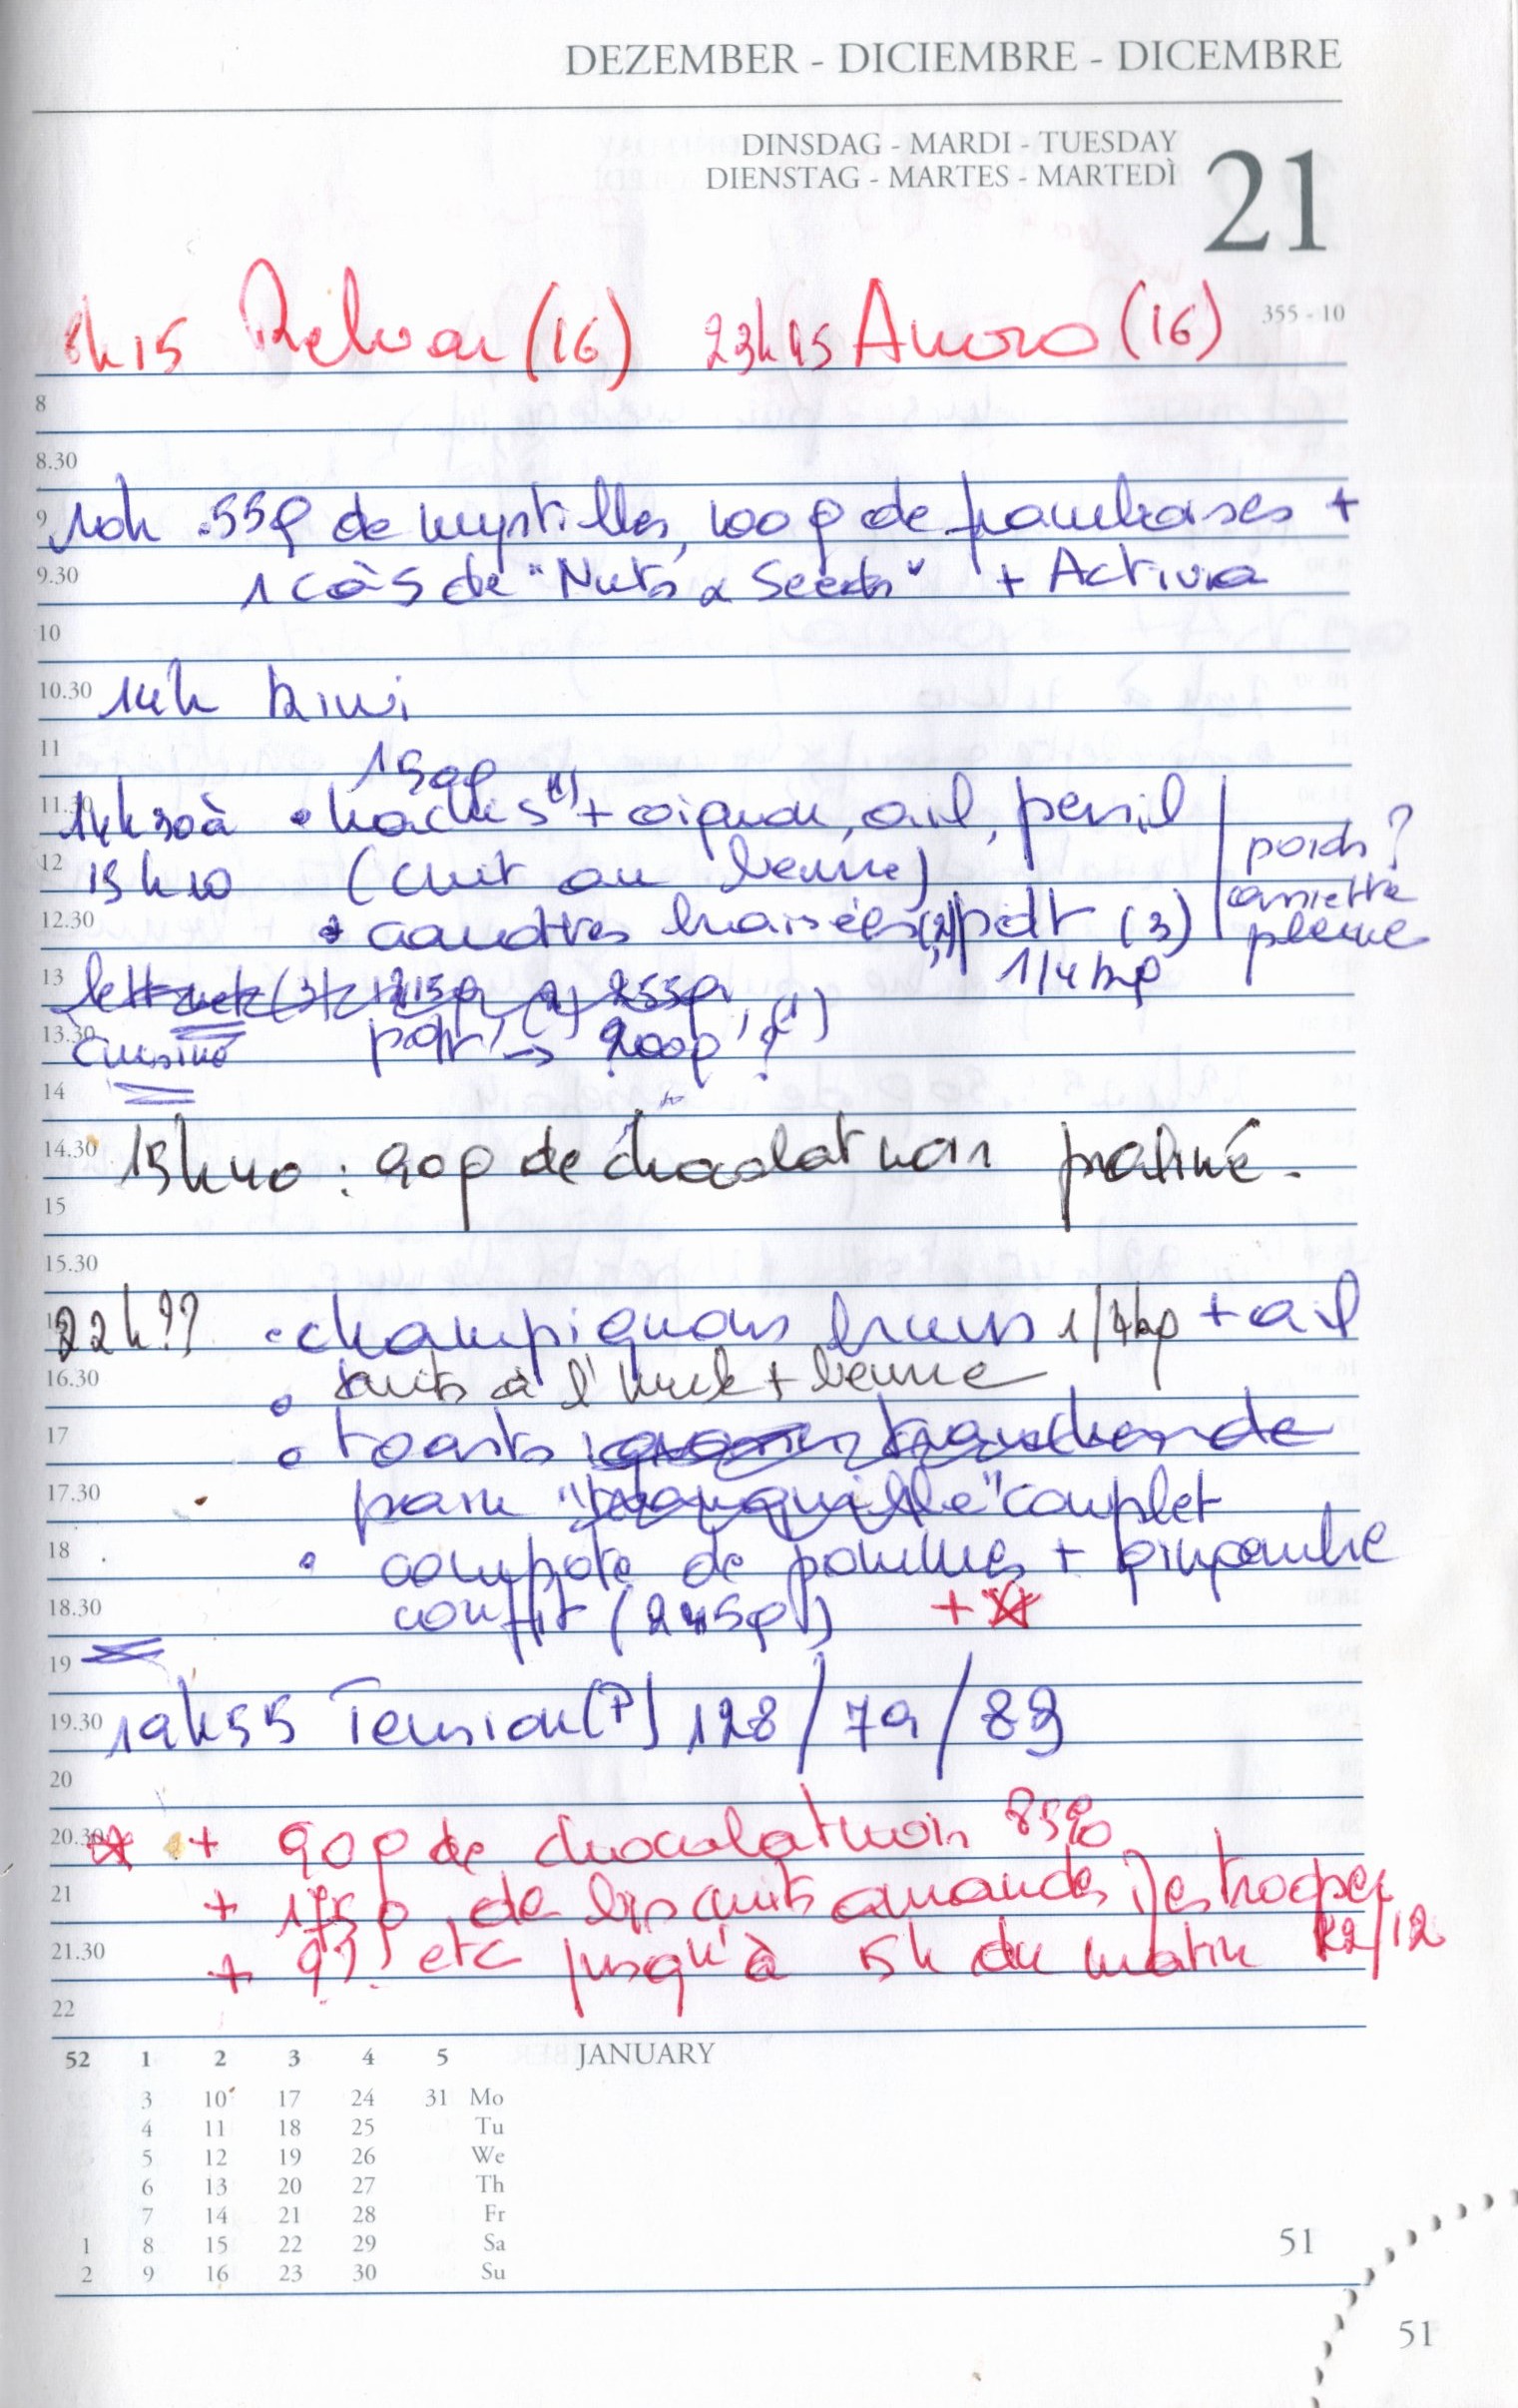 DEZEMBER - DICIEMBRE - DICEMBRE
DINSDAG - MARDI - TUESDAY
DIENSTAG - MARTES - MARTEDÌ
21
355 - 10
8h15 Relvar (16) 23h45 Anoro (16)
8
8.30
9 10h .55g de myrtilles, 100g de framboises +
9.30 1 càs de "Nuts & Seeds" + Activia
10
10.30 14h kiwi
11 150g
11.30 14h30 à • hachis (1) + oignon, ail, persil
12 15h10 (cuit au beurre) poids?
12.30 • carottes braisées (2) pdt (3) assiette
pleine
13 1/4 kg
13.30 cuisiné pdt → 200g ? (1)
14
14.30 15h40 : 90g de chocolat noir praliné.
15
15.30
22h?? • champignons bruns 1/4kg + ail
16.30 cuits à l'huile + beurre
17 • toasts de
17.30 pain complet
18 • compote de pommes + gingembre
18.30 confit (245g) +
19
19.30 19h55 Tension (P) 128/79/89
20
20.30 + 90g de chocolat noir 85%
21 + 175g de biscuits amandes Destrooper
21.30 + g?? etc jusqu'à 5h du matin 22/12
22
52 1 2 3 4 5 JANUARY
3 10 17 24 31 Mo
4 11 18 25 Tu
5 12 19 26 We
6 13 20 27 Th
7 14 21 28 Fr
1 8 15 22 29 Sa
2 9 16 23 30 Su
51
51